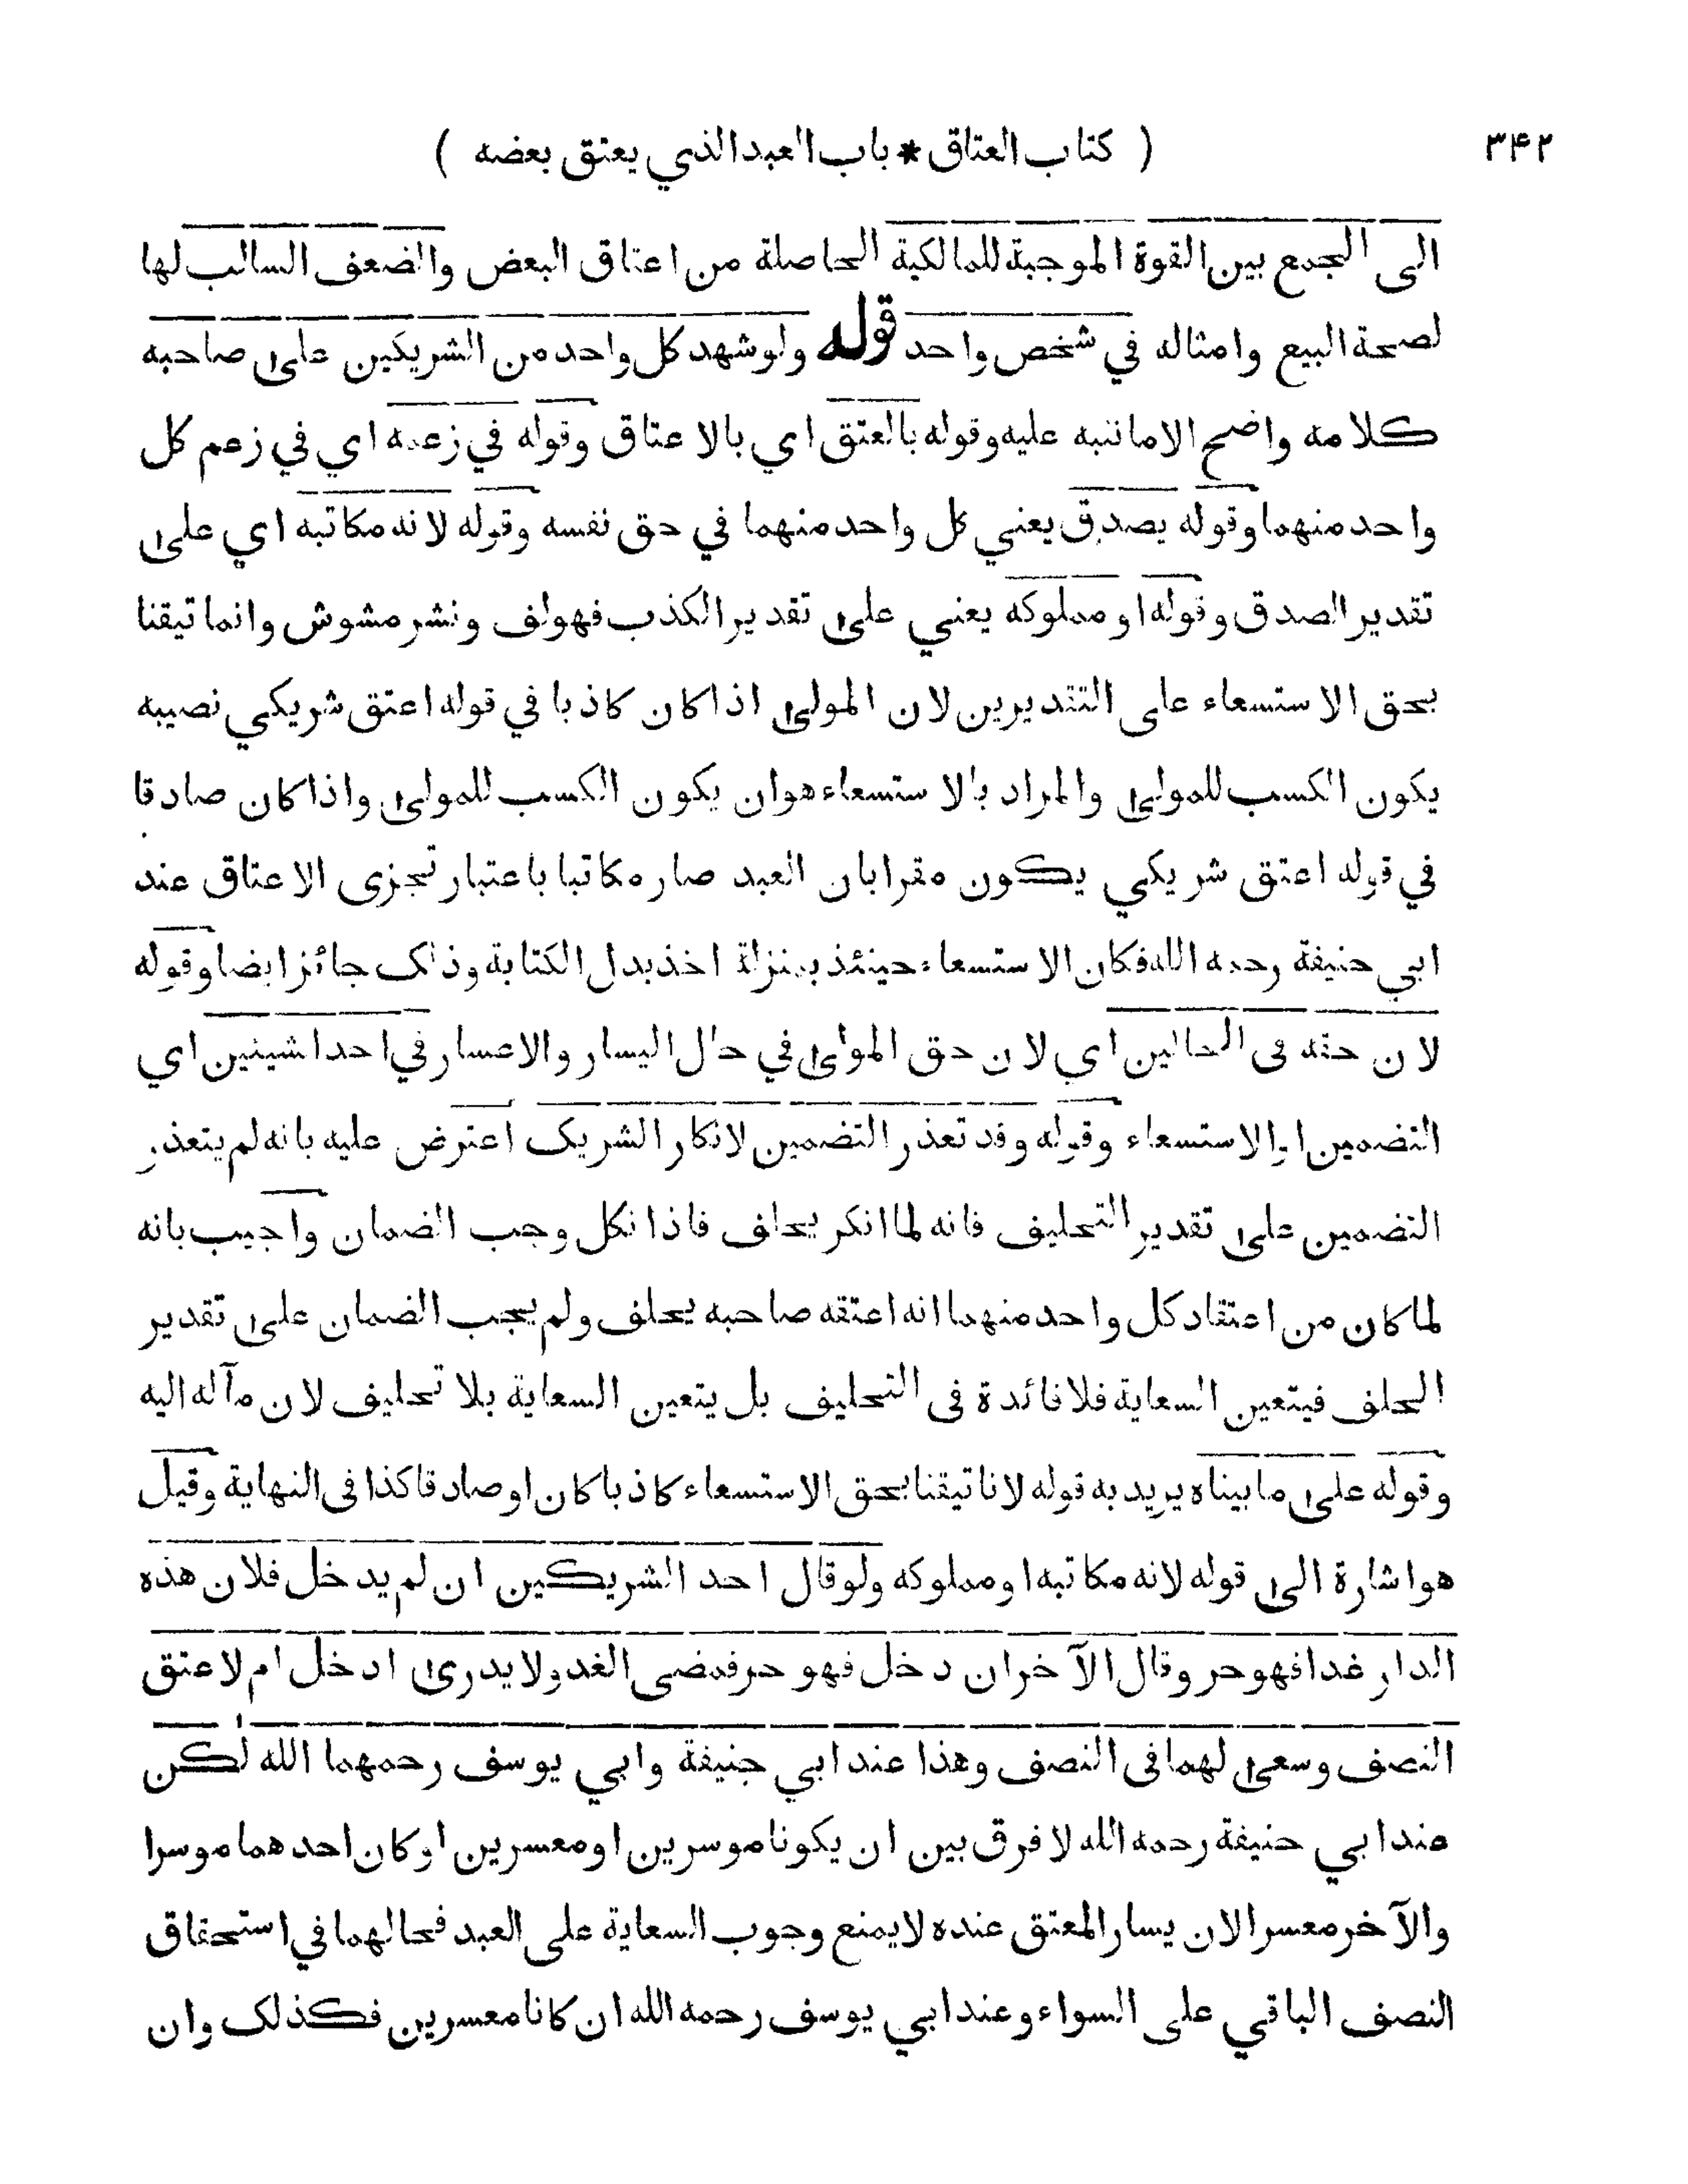 ( كتاب العتاق * باب العبد الذي يعتق بعضه ) ۳۴۲
الى الجمع بين القوة الموجبة للمالكية الحاصلة من اعتاق البعض والضعف السالب لها
لصحة البيع وامثاله في شخص واحد قوله ولو شهد كل واحد من الشريكين على صاحبه
كلامه واضح الا ما ننبه عليه وقوله بالعتق اي بالاعتاق وقوله في زعمه اي في زعم كل
واحد منهما وقوله يصدق يعني كل واحد منهما في حق نفسه وقوله لانه مكاتبه اي على
تقدير الصدق وقوله او مملوكه يعني على تقدير الكذب فهو لف ونشر مشوش وانما تيقنا
بحق الاستسعاء على التقديرين لان المولى اذا كان كاذبا في قوله اعتق شريكي نصيبه
يكون الكسب للمولى والمراد بالاستسعاء هو ان يكون الكسب للمولى واذا كان صادقا
في قوله اعتق شريكي يكون مقرا بان العبد صار مكاتبا باعتبار تجزى الاعتاق عند
ابي حنيفة رحمه الله فكان الاستسعاء حينئذ بمنزلة اخذ بدل الكتابة وذلك جائز ايضا وقوله
لان حقه فى الحالين اي لان حق المولى في حال اليسار والاعسار في احد اشيئين اي
التضمين او الاستسعاء وقوله وقد تعذر التضمين لانكار الشريك اعترض عليه بانه لم يتعذر
التضمين على تقدير التحليف فانه لما انكر يحلف فاذا نكل وجب الضمان واجيب بانه
لما كان من اعتقاد كل واحد منهما انه اعتقه صاحبه يحلف ولم يجب الضمان على تقدير
الحلف فيتعين السعاية فلا فائدة فى التحليف بل يتعين السعاية بلا تحليف لان مآله اليه
وقوله على ما بيناه يريد به قوله لانا تيقنا بحق الاستسعاء كاذبا كان او صادقا كذا فى النهاية وقيل
هو اشارة الى قوله لانه مكاتبه او مملوكه ولو قال احد الشريكين ان لم يدخل فلان هذه
الدار غدا فهو حر وقال الآخر ان دخل فهو حر فمضى الغد ولا يدرى ادخل ام لا عتق
النصف وسعى لهما فى النصف وهذا عند ابي حنيفة وابي يوسف رحمهما الله لكن
عند ابي حنيفة رحمه الله لا فرق بين ان يكونا موسرين او معسرين او كان احدهما موسرا
والآخر معسرا لان يسار المعتق عنده لا يمنع وجوب السعاية على العبد فحالهما في استحقاق
النصف الباقي على السواء وعند ابي يوسف رحمه الله ان كانا معسرين فكذلك وان